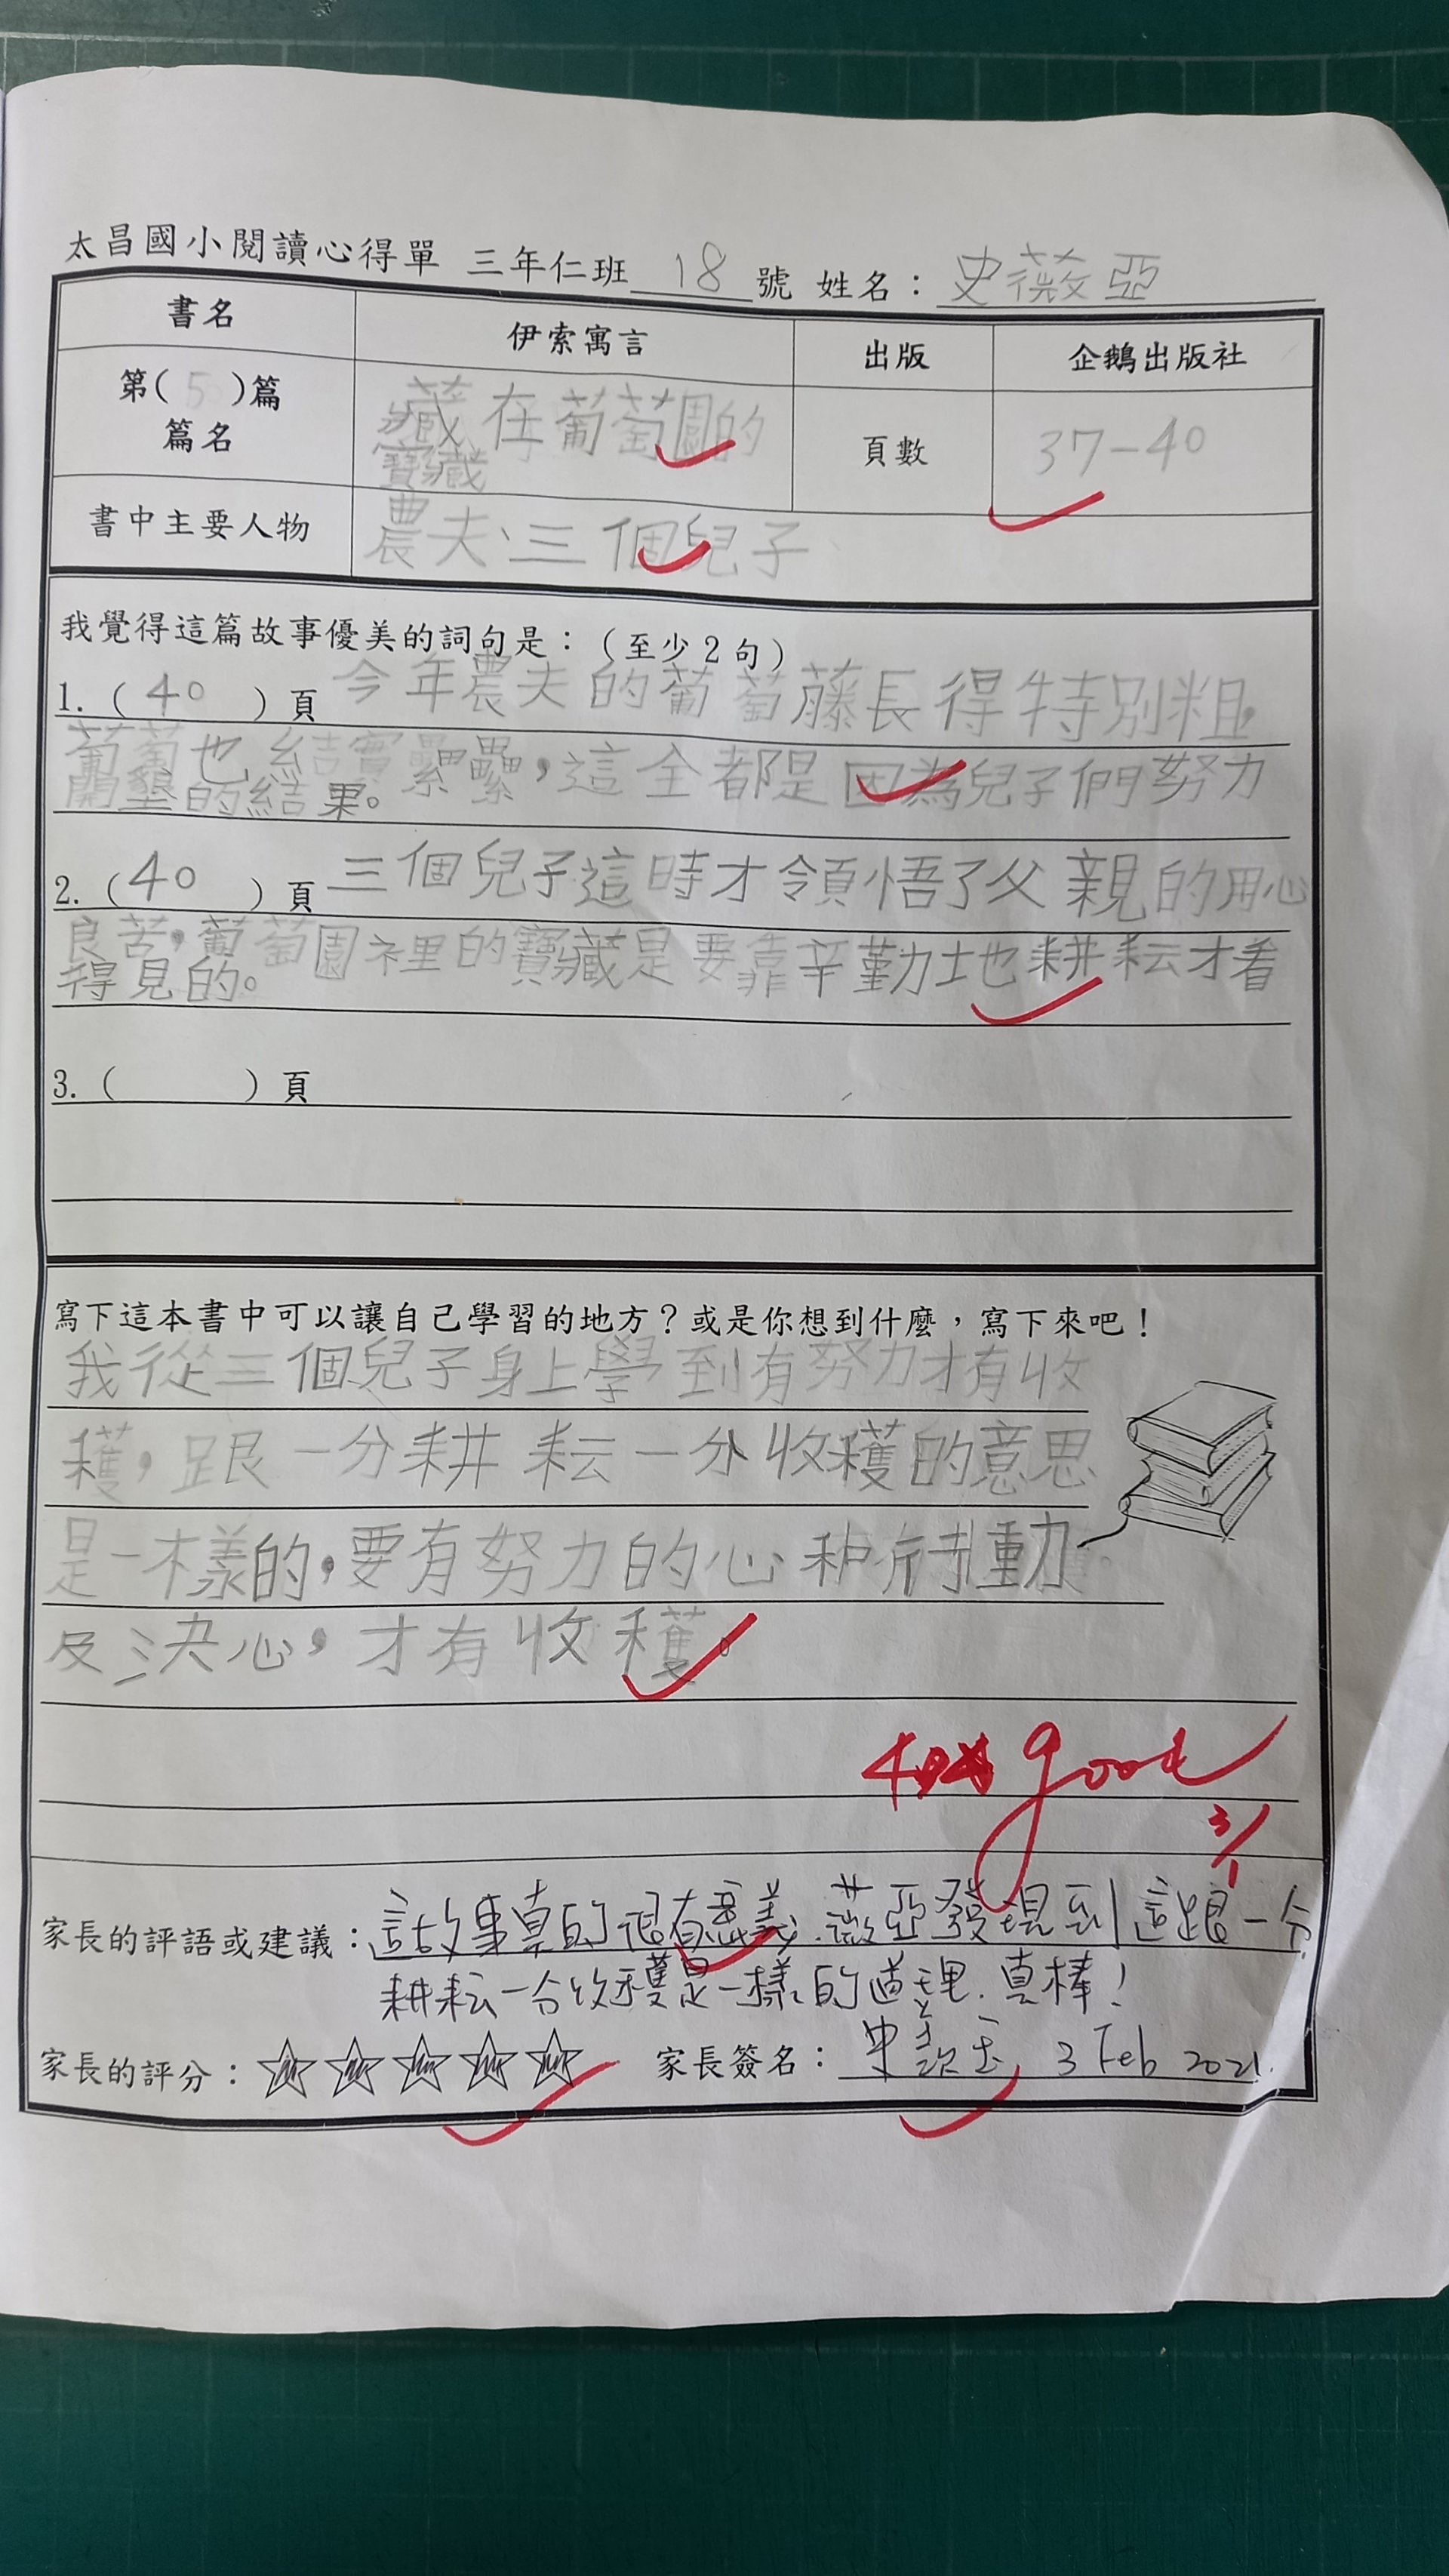 太昌國小閱讀心得單 三年仁班 18 號 姓名：史薇亞
書名 伊索寓言 出版 企鵝出版社
第(5)篇
篇名 藏在葡萄園的
寶藏 頁數 37-40
書中主要人物 農夫、三個兒子
我覺得這篇故事優美的詞句是：（至少2句）
1.（40）頁 今年農夫的葡萄藤長得特別粗，
葡萄也結實纍纍，這全都是因為兒子們努力
開墾的結果。
2.（40）頁 三個兒子這時才領悟了父親的用心
良苦，葡萄園裡的寶藏是要靠辛勤地耕耘才看
得見的。
3.（ ）頁
寫下這本書中可以讓自己學習的地方？或是你想到什麼，寫下來吧！
我從三個兒子身上學到有努力才有收
穫，跟一分耕耘一分收穫的意思
是一樣的，要有努力的心和行動
及決心，才有收穫。
good
3/1
家長的評語或建議：這故事真的很有意義，薇亞發現到這跟一分
耕耘一分收穫是一樣的道理，真棒！
家長的評分：☆☆☆☆☆ 家長簽名：史 3 Feb 2021